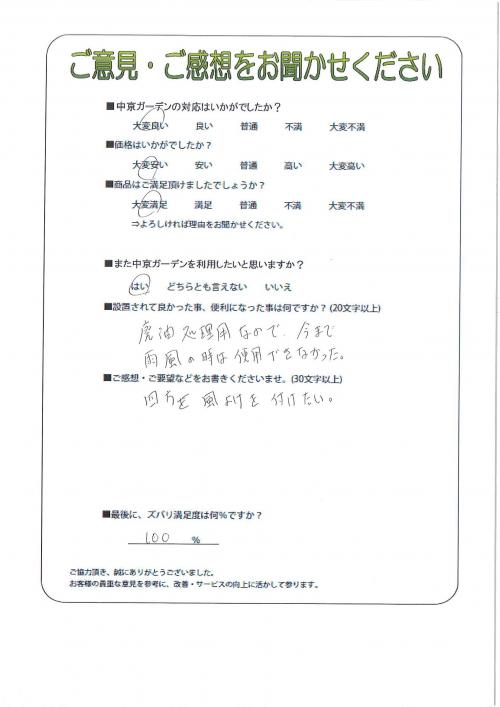 ご意見・ご感想をお聞かせください
■中京ガーデンの対応はいかがでしたか？
大変良い 良い 普通 不満 大変不満
■価格はいかがでしたか？
大変安い 安い 普通 高い 大変高い
■商品はご満足頂けましたでしょうか？
大変満足 満足 普通 不満 大変不満
⇒よろしければ理由をお聞かせください。
■また中京ガーデンを利用したいと思いますか？
はい どちらとも言えない いいえ
■設置されて良かった事、便利になった事は何ですか？(20文字以上)
廃油処理用なので、今まで
雨風の時は使用できなかった。
■ご感想・ご要望などをお書きくださいませ。(30文字以上)
四方を風よけを付けたい。
■最後に、ズバリ満足度は何％ですか？
100 ％
ご協力頂き、誠にありがとうございました。
お客様の貴重な意見を参考に、改善・サービスの向上に活かして参ります。